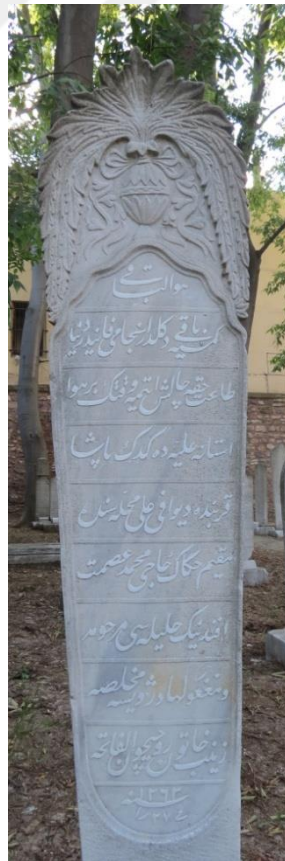 هوالباقی
كمسه باقی دكلدر انجامی فانیدر دنیا
طاعت حقه چالش ایتمه وقتك بر هوا
استانهٔ علیه ده كدك پاشا
قربنده دیوانی علی محله سنده
مقیم حكاك حاجی محمد عصمت
افندینك حلیله سی مرحومه
ومغفور لها
زینب خاتون روحیچون الفاتحه
سنه ١٢٦٣